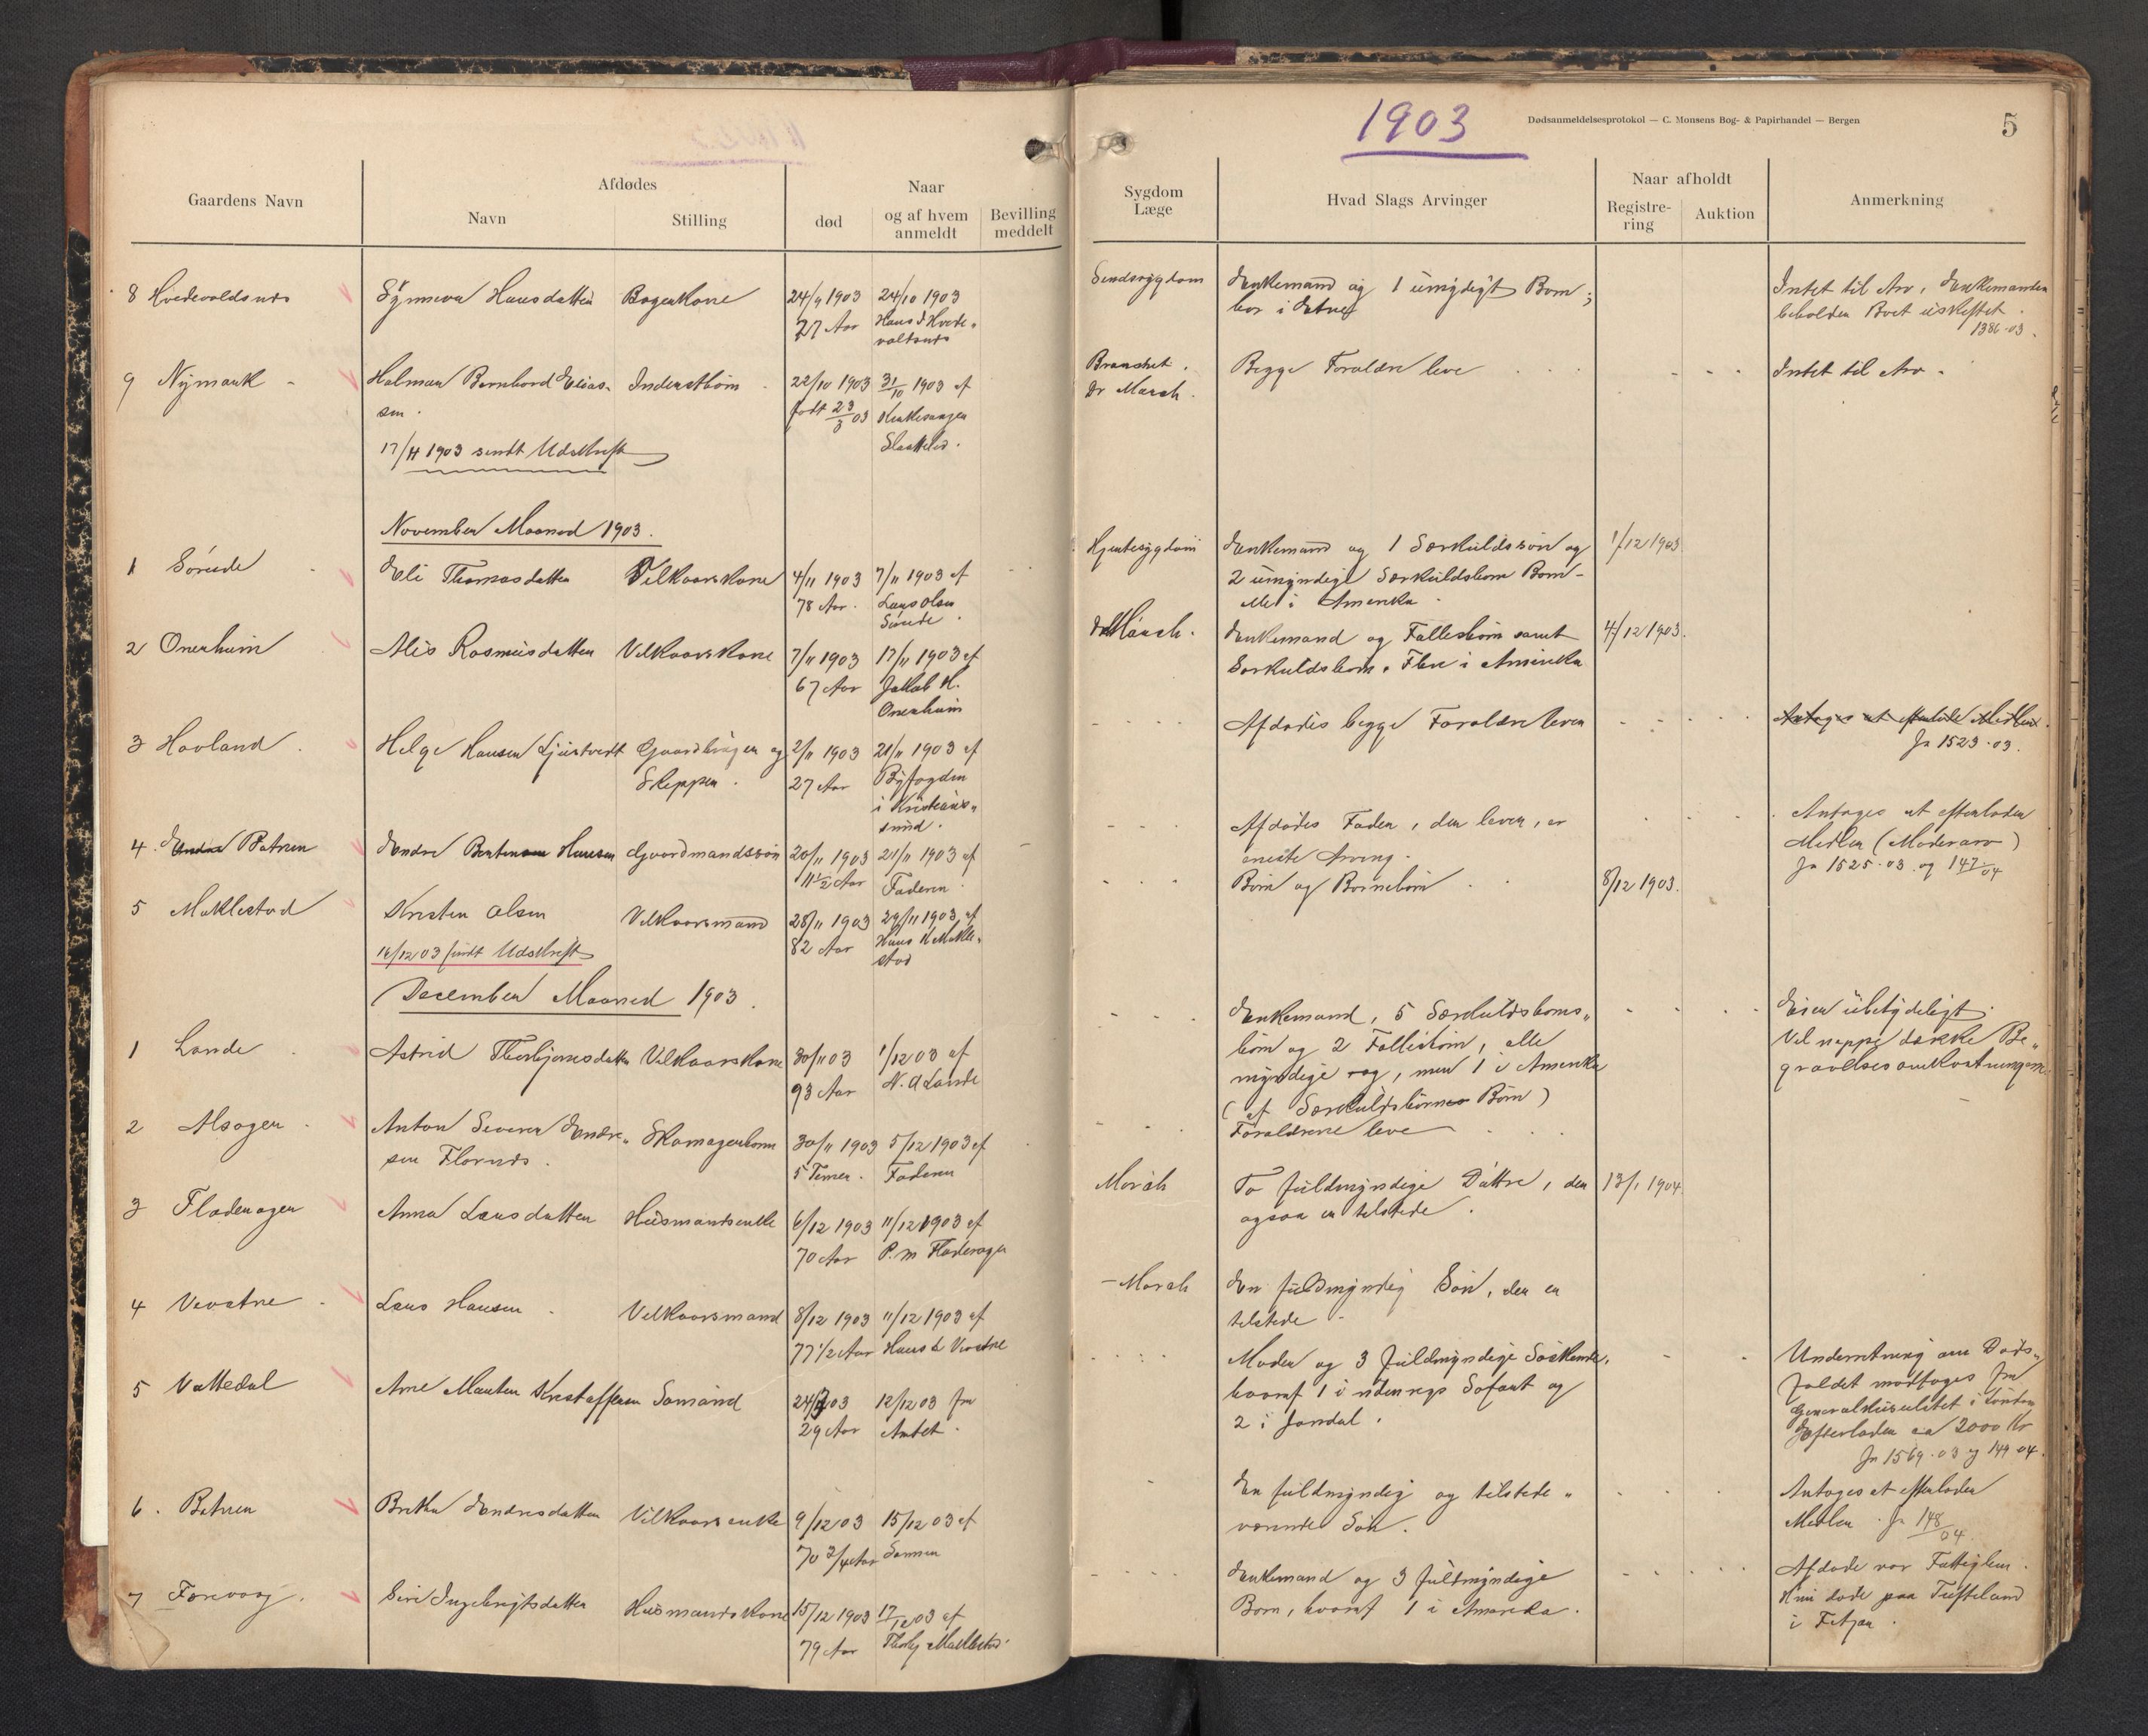 1903
Dødsanmeldelsesprotokol — C. Monsens Bog- & Papirhandel — Bergen
5
Gaardens Navn
Afdødes
Navn
Stilling
Naar
død
og af hvem anmeldt
Bevilling meddelt
Sygdom
Læge
Hvad Slags Arvinger
Naar afholdt
Registrering
Auktion
Anmerkning
8 Hvedevoldsnes
Synneva Hansdatter
Bøgerkone
24/9 1903
77 Aar
24/10 1903
Hans J Hvede-
voldsnes
Sindssygdom
Enkemand og 1 umyndigt Barn;
bor i Etne
Intet til Arv, Enkemanden
beholder Boet uskiftet.
1386.03.
9 Nymark
Halmar Bernhard Elias-
sen.
Inderstbarn
22/10 1903
født 23/3 03
31/10 1903 af
Kirkesanger
Slaatteli.
Bronchit.
Dr Marck.
Begge Forældre leve
Intet til Arv.
17/11 1903 sendt Udskrift
November Maaned 1903.
1 Sørude
Eli Thomasdatter
Vilkaarskone
4/11 1903
78 Aar.
7/11 1903 af
Lars Olsen
Hjertesygdom
Enkemand og 1 Særkuldssøn og
2 umyndige Særkuldsbarn Børn -
alle i Amerika
1/12 1903
2 Onerheim
Alis Rasmusdatter
Vilkaarskone
7/11 1903
67 Aar
17/11 1903 af
Jakob H.
Onerheim
Dr Marck.
Enkemand og Fællesbørn samt
Særkuldsbørn. Flere i Amerika
4/12 1903.
3 Hovland
Helge Hansen Ljustvedt
Gaardbruger og
Skipper.
2/11 1903
27 Aar
21/11 1903 af
Byfogden
i Kristians-
sund.
Afdødes begge Forældre lever
Antages at efterlade Midler.
Jr 1523.03.
4. Endre Batnen
Endre Hansen
Gaardmandssøn
20/11 1903
11 1/2 Aar
21/11 1903 af
Faderen
Afdødes Fader, der lever, er
eneste Arving.
Antages at efterlade
Midler (Mødrearv)
Jr 1525.03. og 147/04
5 Meklestad
Kristen Olsen
Vilkaarsmand
28/11 1903
82 Aar
29/11 1903 af
Hans K Mekle-
stad
Børn og Børnebørn
8/12 1903.
16/12 03 sendt Udskrift
December Maaned 1903.
1 Lande
Astrid Thorbjørnsdatter
Vilkaarskone
30/11 03
93 Aar
1/12 03 af
N. A Lande
Enkemand, 5 Særkuldsbarns-
børn og 2 Fællesbørn, alle
myndige og, men 1 i Amerika
(af Særkuldsbørnes Børn)
Eier ubetydeligt.
Vil neppe dække Be-
gravelsesomkostningerne
2 Alsager
Anton Severin Endre-
sen Flornes.
Skomagerbarn
30/11 1903
5 Timer.
5/12 1903 af
Faderen
Forældrene leve
3 Fladenagen
Anna Larsdatter
Husmandsenke
6/12 1903
70 Aar
11/12 1903 af
P. M Fladenagen
Marck
To fuldmyndige Døttre, der
ogsaa er tilstede.
13/1 1904
4 Vevatne
Lars Hansen
Vilkaarsmand
8/12 1903
77 1/2 Aar
11/12 1903 af
Hans L Vevatne
- Marck
En fuldmyndig Søn, der er
tilstede -
5 Vattedal
Arne Marten Kristoffersen
Sømand
03
29 Aar
12/12 03 fra
Amtet.
Moder og 3 fuldmyndige Søskende,
hvoraf 1 i udenrigs Søfart og
2 i Jondal.
Underretning om Døds-
faldet modtoges fra
Generalkonsulatet i London
Efterlader ca 2000 Kr
Jr 1569.03 og 149 04.
6. Batnen
Britha Endresdatter
Vilkaarsenke
9/12 03
70 3/4 Aar
15/12 03 af
Sønnen
En fuldmyndig og tilstede-
værende Søn.
Antages at efterlader
Midler. Jr 148/04.
7 Forevaag.
Siri Ingebrigtsdatter
Husmandskone
15/12 1903
79 Aar
17/12 03 af
Enkemand og 3 fuldmyndige
Børn, hvoraf 1 i Amerika.
Afdøde var Fattiglem.
Hun døde paa Tufteland
i Fitjar.